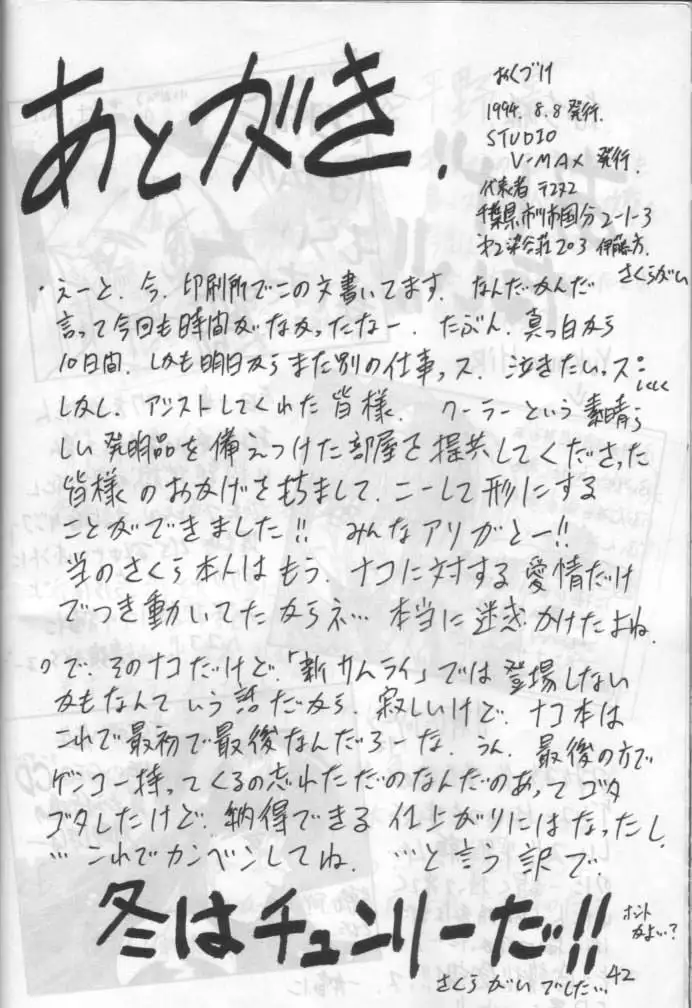 あとがき.
おくづけ
1994. 8. 8 発行.
STUDIO
V-MAX 発行.
代表者
千葉県市川市国分2-1-3
第2染谷荘203 伊藤方.
さくらがい
・えーと、今、印刷所でこの文書いてます. なんだかんだ
言って今回も時間がなかったなー. たぶん、真っ白から
10日間. しかも明日からまた別の仕事ッス. 泣きたいッス:
しかし、アシストしてくれた皆様、クーラーという素晴ら
しい発明品を備えつけた部屋を提供してくださった
皆様のおかげを持ちまして、こーして形にする
ことができました!! みんなアリがとー!!
当のさくら本人はもう、ナコに対する愛情だけ
でつき動いてたからネ… 本当に迷惑かけたよね.
○で、そのナコだけど、「新サムライ」では登場しない
かもなんていう話だから、寂しいけど、ナコ本は
これで最初で最後なんだろーな. うん. 最後の方で
ゲンコー持ってくるの忘れただのなんだのあってゴタ
ゴタしたけど、納得できる仕上がりにはなったし.
… これでカンベンしてね. …と言う訳で.
冬はチュンリーだッ!!
ホント
かよい?
さくらがいでした… 42